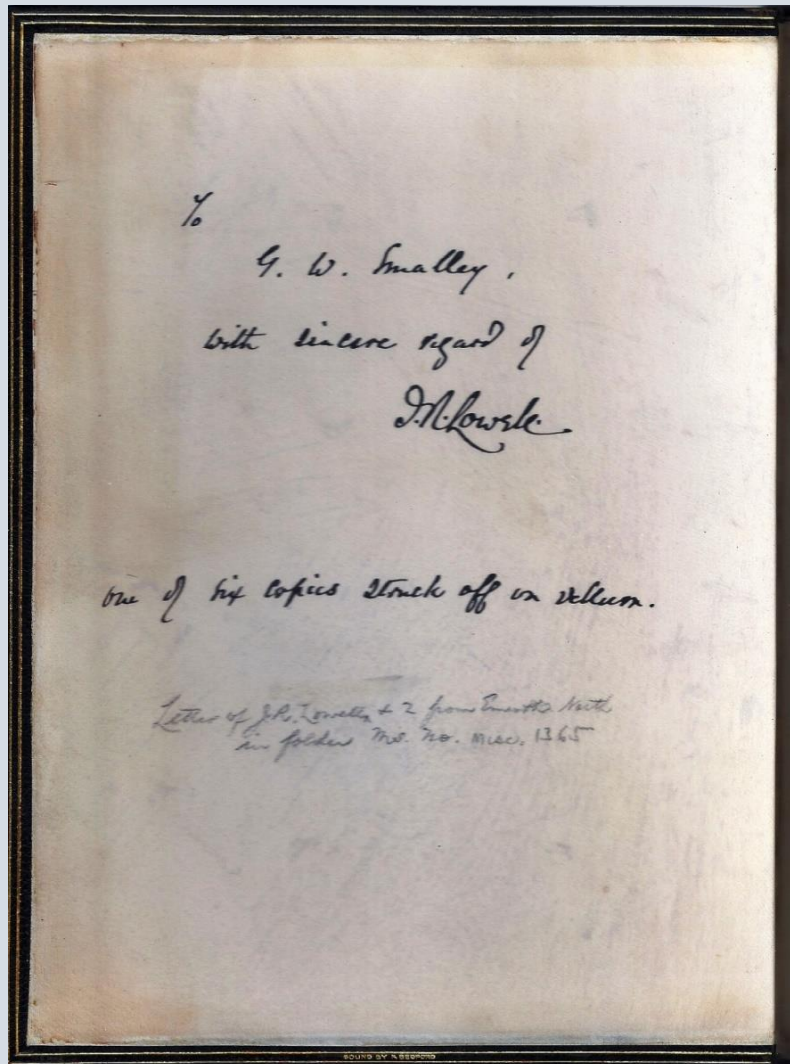 To
G. W. Smalley,
with sincere regard of
J. R. Lowell.
one of six copies struck off on vellum.
Letter of J. R. Lowell, + 2 from North
in folder Ms. No. Misc. 1365
BOUND BY F. BEDFORD